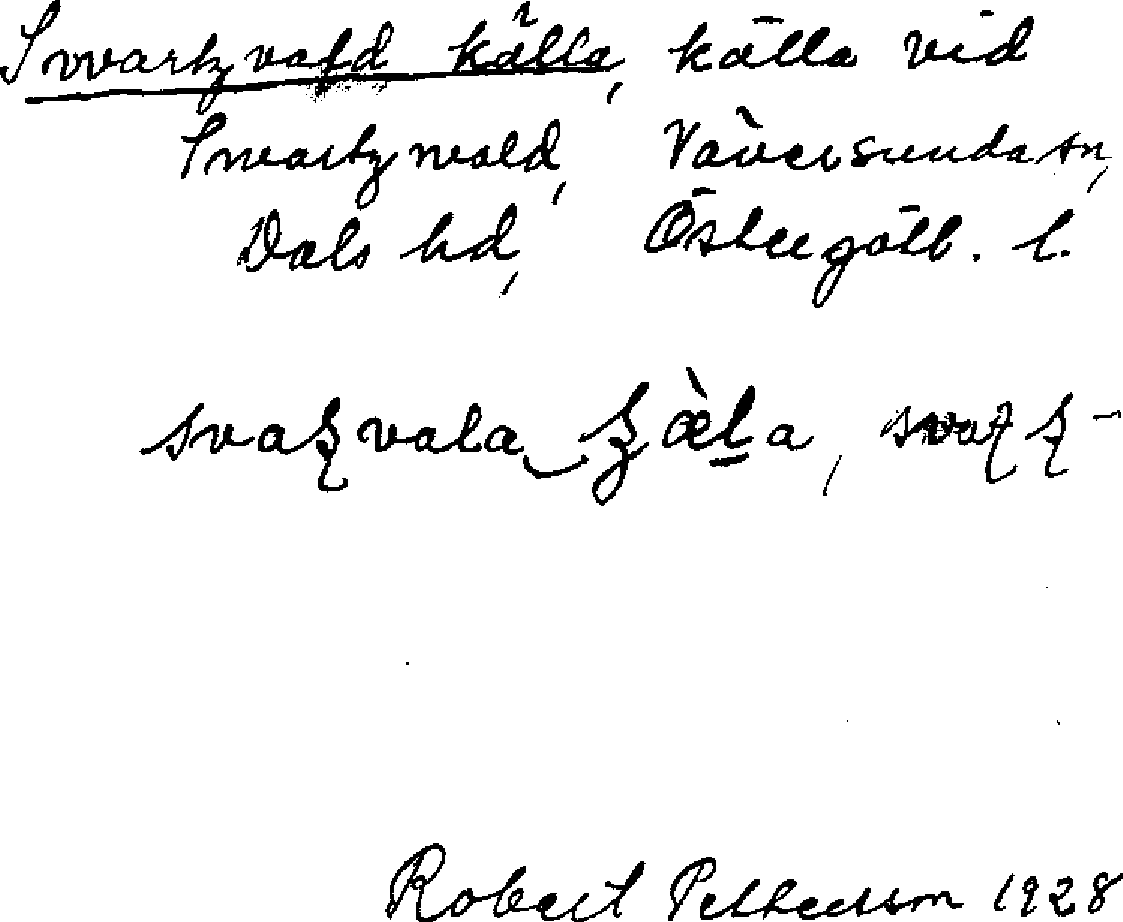 Swartzvald källa, källa vid
Swartzwald, Väversunda sn,
Dals hd, Östergötl. l.
Robert Pettersson 1928